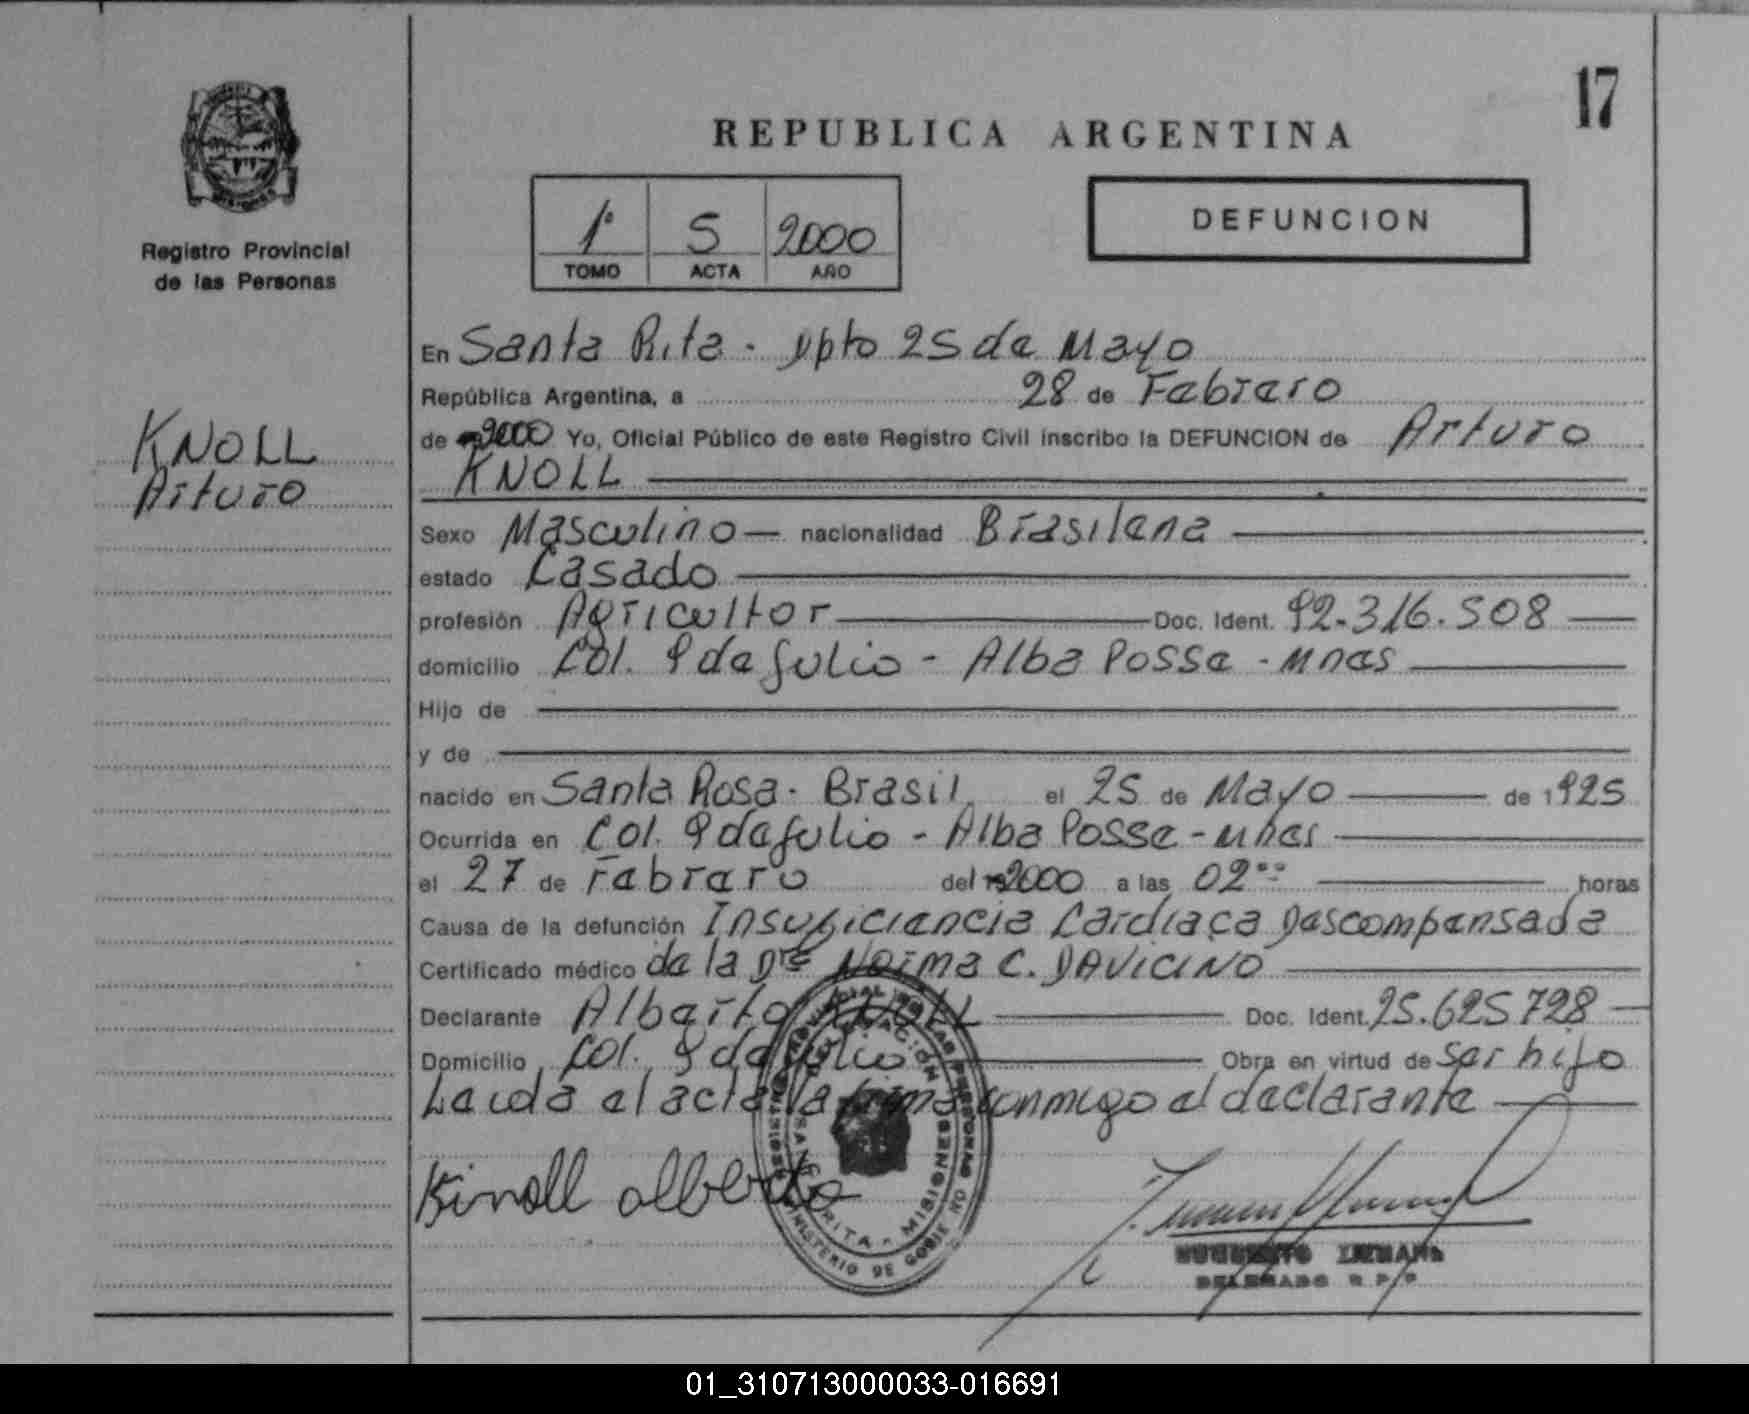 17
REPUBLICA ARGENTINA
1º S 2000
TOMO ACTA AÑO
DEFUNCION
Registro Provincial
de las Personas
KNOLL
Arturo
En Santa Rita - Dpto 25 de Mayo
República Argentina, a 28 de Febrero
de 2000 Yo, Oficial Público de este Registro Civil inscribo la DEFUNCION de Arturo
KNOLL
Sexo Masculino nacionalidad Brasilena
estado Casado
profesión Agricultor Doc. Ident. 92.316.508
domicilio Col. 9 de Julio - Alba Posse - Mnes
Hijo de
y de
nacido en Santa Rosa - Brasil el 25 de Mayo de 1925
Ocurrida en Col. 9 de Julio - Alba Posse - Mnes
el 27 de Febrero del 2000 a las 02 horas
Causa de la defunción Insuficiencia Cardiaca Descompensada
Certificado médico de la Dra Norma C. DAVICINO
Declarante Alberto KNOLL Doc. Ident. 25.625728
Domicilio Col. 9 de Julio Obra en virtud de ser hijo
Leida el acta la firma conmigo el declarante
Kinoll alberto
REGISTRO PROVINCIAL DE LAS PERSONAS
DELEGACION
SANTA RITA - MISIONES
MINISTERIO DE GOBIERNO
DELEGADO R.P.P
01_310713000033-016691